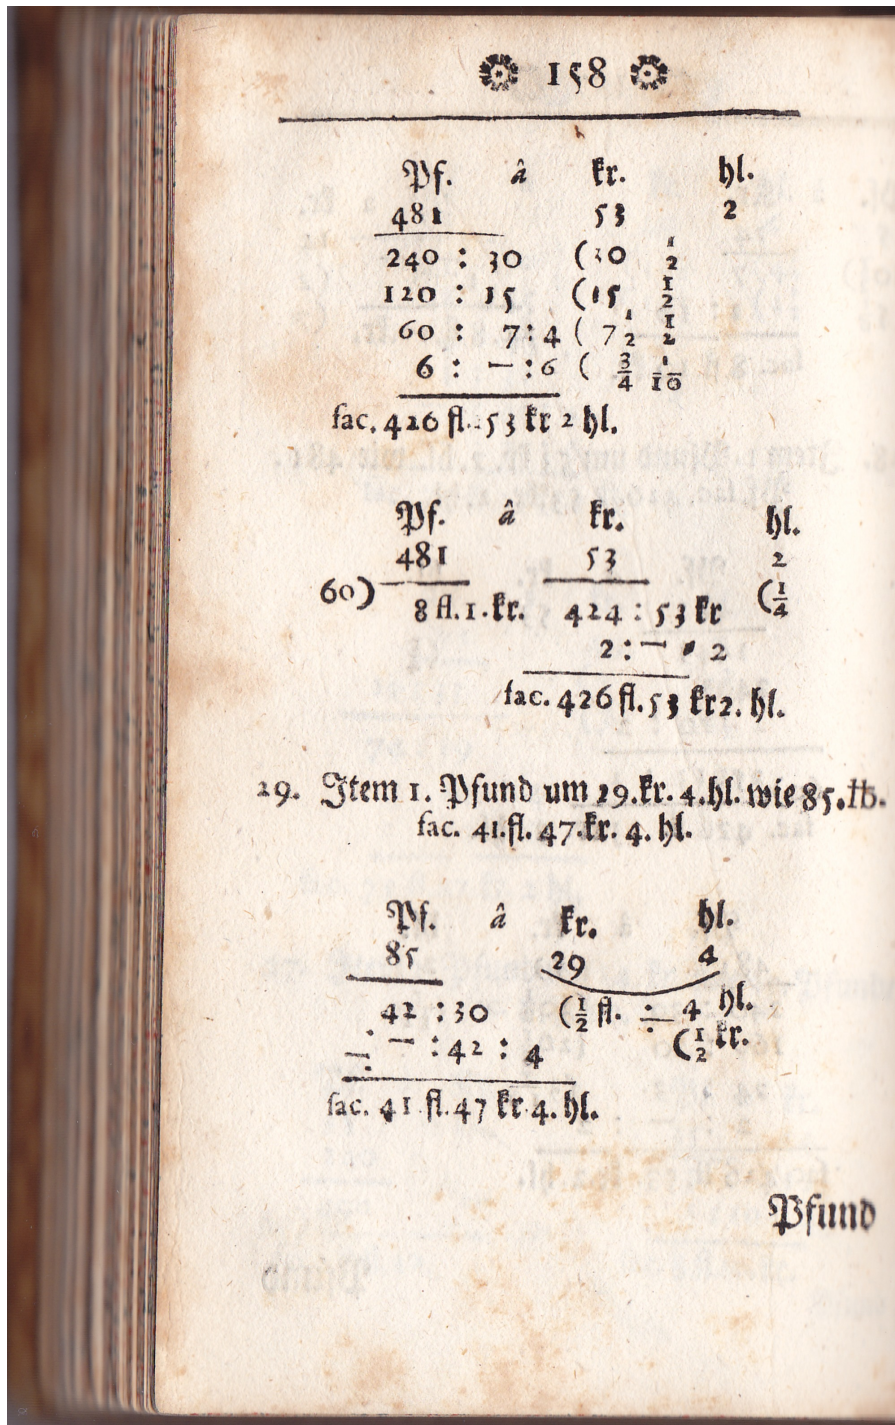 158
Pf. â kr. hl.
481 53 2
240 : 30 (30 1/2
120 : 15 (15 1/2
60 : 7 : 4 ( 7 1/2 1/2
6 : — : 6 ( 3/4 1/10
fac. 426 fl. 53 kr 2 hl.
Pf. â kr. hl.
481 53 2
60) 8 fl. 1. kr. 424 : 53 kr (1/4
2 : — : 2
fac. 426 fl. 53 kr 2. hl.
29. Item 1. Pfund um 29. kr. 4. hl. wie 85. ℔.
fac. 41. fl. 47. kr. 4. hl.
Pf. â kr. hl.
85 29 4
42 : 30 (1/2 fl. ÷ 4 hl.
÷ — : 42 : 4 (1/2 kr.
fac. 41 fl. 47 kr. 4. hl.
Pfund